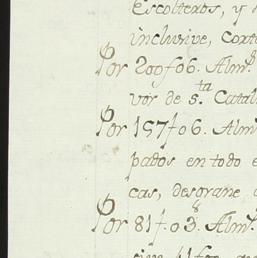 Escolteros, y
inclusive, cort
Por 200 f 06. Alm.ˢ
vor de S.ᵗᵃ Catal
Por 157 f 06. Alm
pados en todo e
cas, desorane
Por 81 f 03 Alm.ˢ